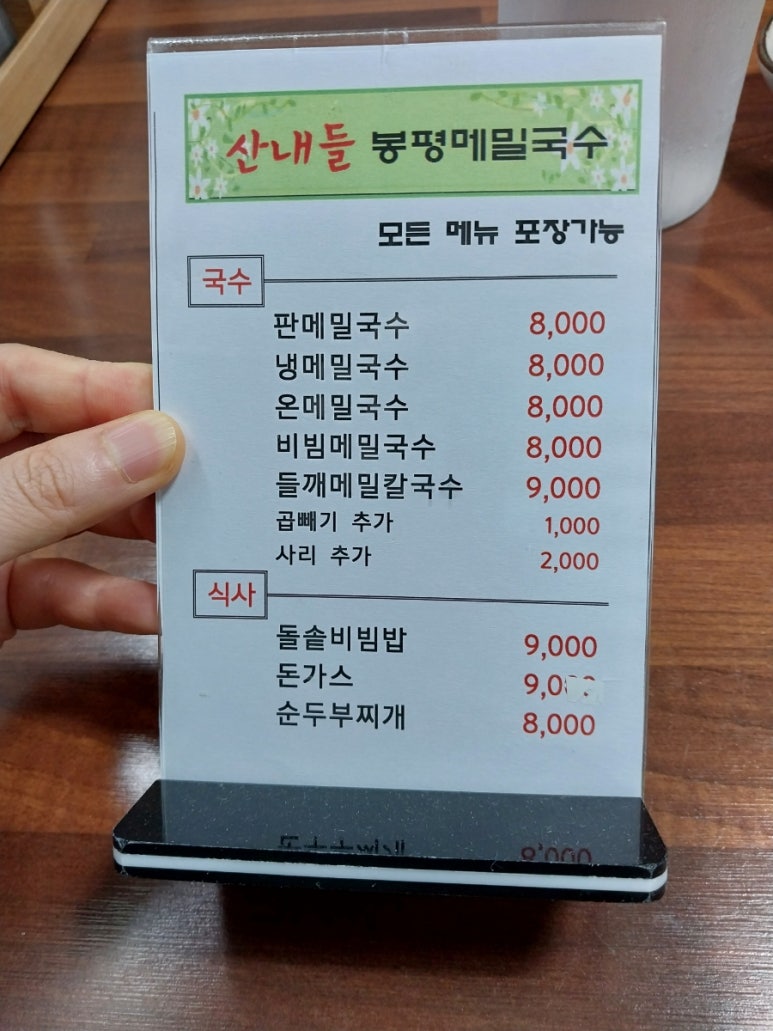 산내들 봉평메밀국수
모든 메뉴 포장가능
국수
판메밀국수 8,000
냉메밀국수 8,000
온메밀국수 8,000
비빔메밀국수 8,000
들깨메밀칼국수 9,000
곱빼기 추가 1,000
사리 추가 2,000
식사
돌솥비빔밥 9,000
돈가스
순두부찌개 8,000